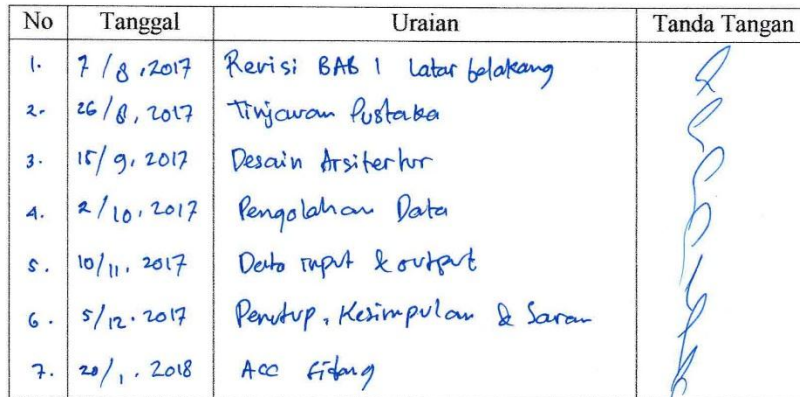 No Tanggal Uraian Tanda Tangan
1. 7/8, 2017 Revisi BAB 1 Latar belakang
2. 26/8, 2017 Tinjauan Pustaka
3. 15/9, 2017 Desain Arsitektur
4. 2/10, 2017 Pengolahan Data
5. 10/11, 2017 Data input & output
6. 5/12. 2017 Penutup, Kesimpulan & Saran
7. 20/1. 2018 ACC Sidang